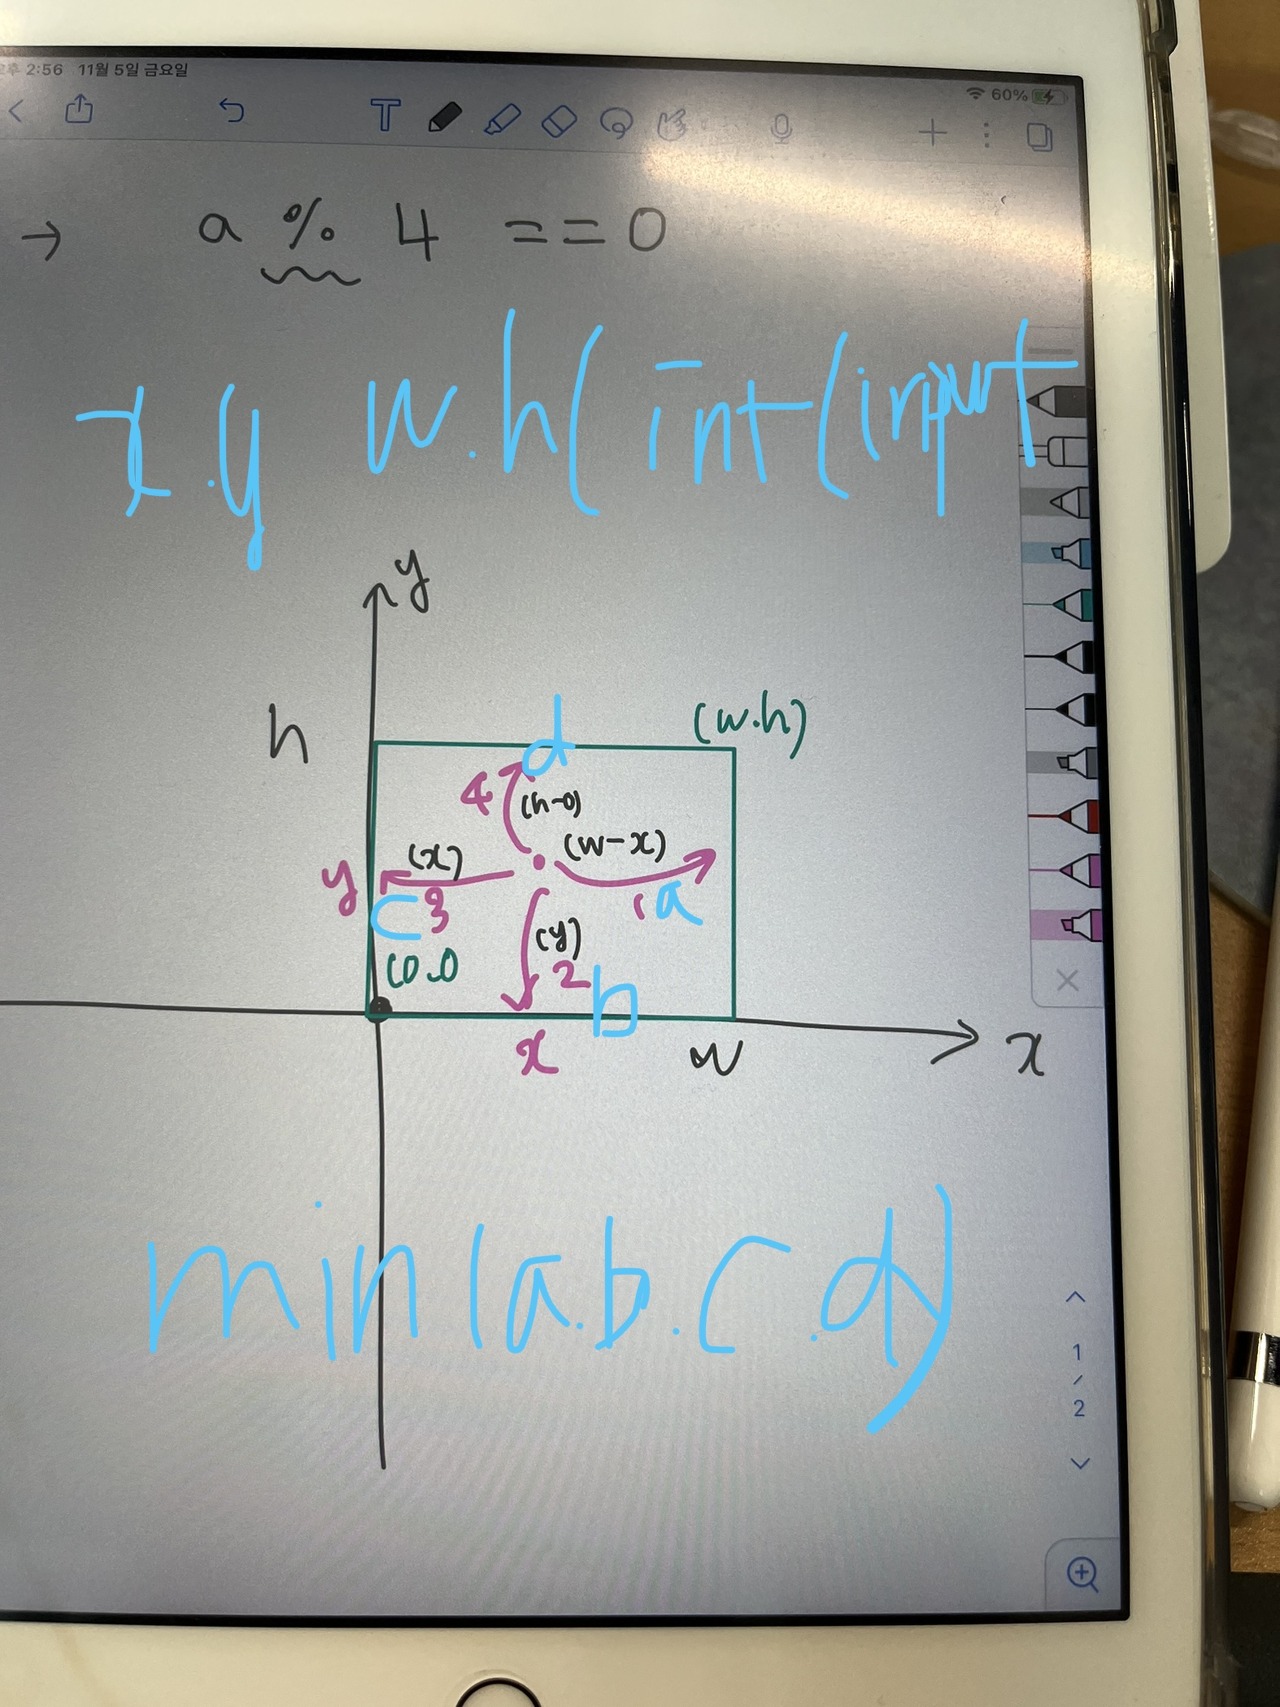 오후 2:56 11월 5일 금요일
60%
T
→ a % 4 == 0
x.y w.h(int(input
y
h
d
(w.h)
4
(h-0)
(x)
(w-x)
y
c 3
1 a
(y)
(0.0
2
b
x
w
x
min(a.b.c.d)
1
/
2